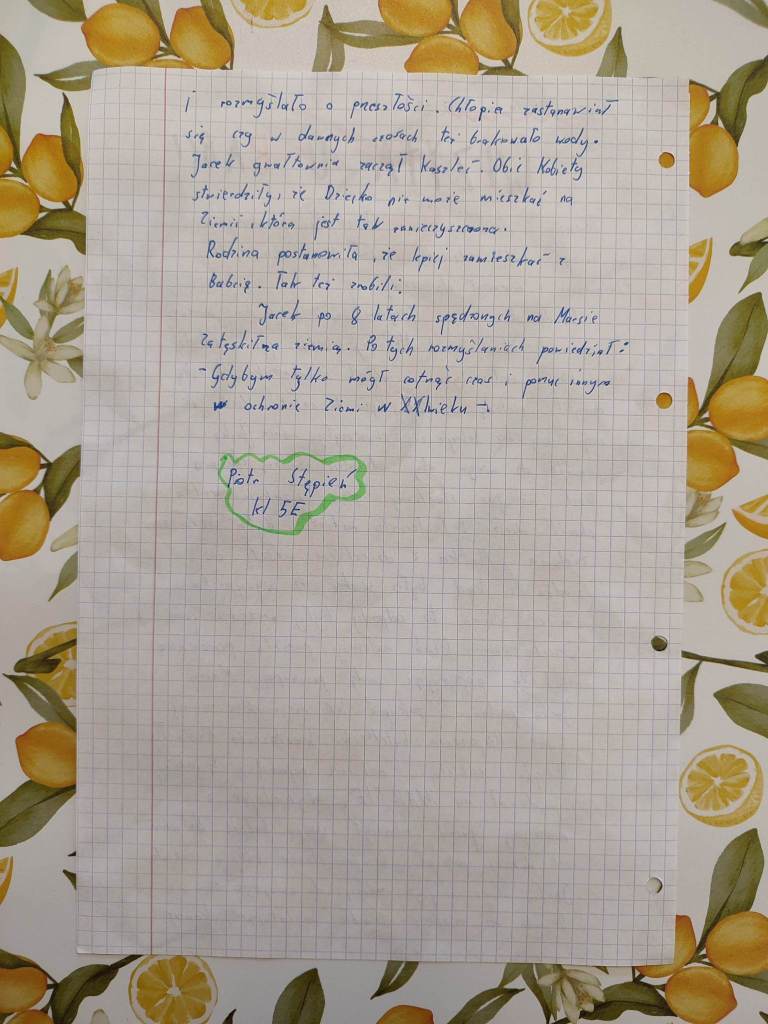 i rozmyślało o przeszłości. Chłopie zastanawiał
się czy w dawnych czasach też brakowało wody.
Jacek gwałtownia zaczął Kaszleć. Obie Kobiety
stwierdziły, że Dziecko nie może mieszkać na
Ziemii, która jest tak zanieczyszczona.
Rodzina postanowiła, że lepiej zamieszkać z
Babcią. Tak też zrobili.
Jacek po 8 latach spędzonych na Marsie
zatęskił za ziemią. Po tych rozmyślaniach powiedział:
- Gdybym tylko mógł cofnąć czas i pomuc innym
w ochronie Ziemi w XXI wieku -.
Piotr Stępień
kl 5E